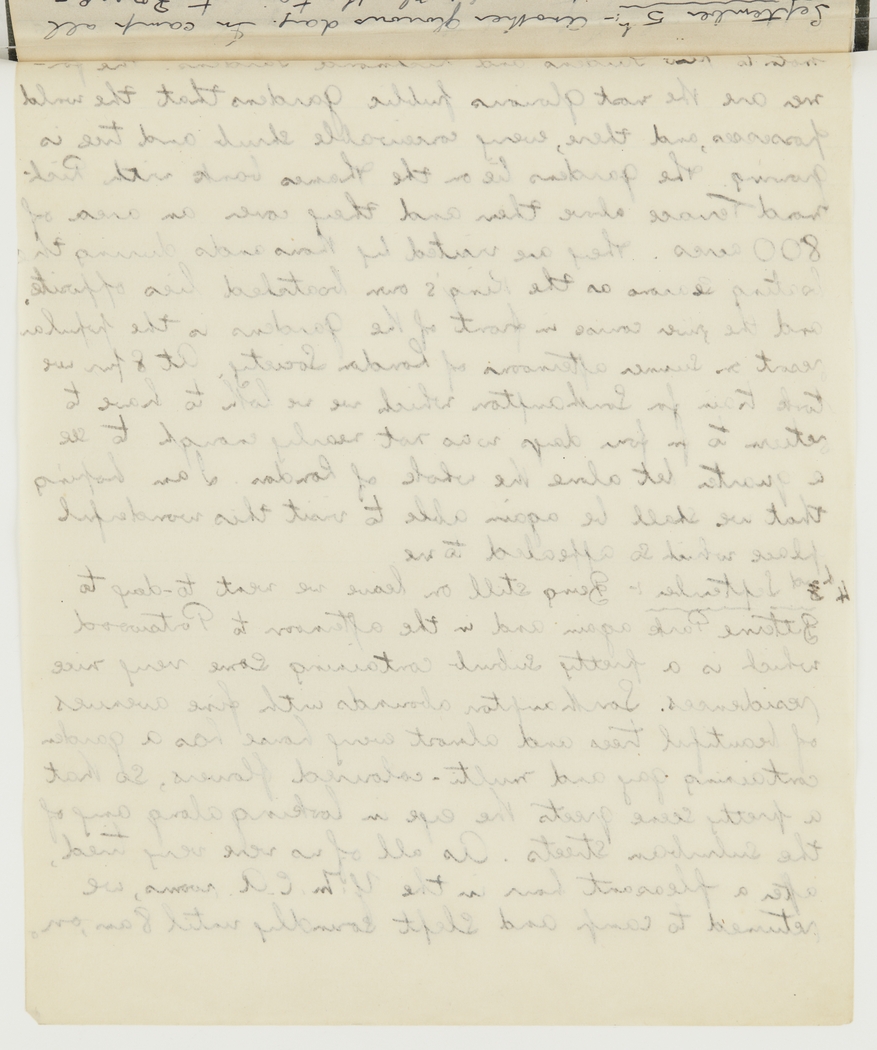 September 5th:- Another glorious day. In camp all
me are the most glorious public gardens that the world
possesses, and there, every conceivable shrub and tree is
growing. The gardens lie on the Thames bank with Rich-
mond Terrace above them and they cover an area of
800 acres. They are visited by thousands during the
boating season as the King's own boatshed lies opposite,
and the river course in front of the gardens is the popular
resort on summer afternoons of London Society. At 8 pm we
took train for Southampton which we were loth to have to
return to for four days was not nearly enough to see
a quarter let alone the whole of London. I am hoping
that we shall be again able to visit this wonderful
place which so appealed to me
4th September :- Being still on leave we went to-day to
Bitterne Park again and in the afternoon to Portswood
which is a pretty suburb containing some very nice
residences. Southampton abounds with fine avenues
of beautiful trees and almost every house has a garden
containing gay and multi-coloured flowers, so that
a pretty scene greets the eye in looking along any of
the suburban streets. As all of us were very tired,
after a pleasant hour in the Y.M.C.A. rooms, we
returned to camp and slept soundly until 8 am, on